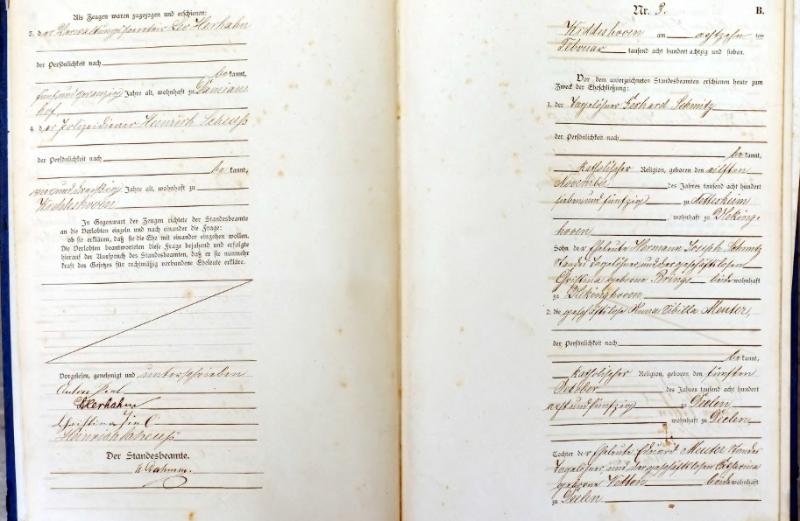 Als Zeugen waren zugezogen und erschienen:
3. der Verwaltungssekretär Leo Herhahn
der Persönlichkeit nach
bekannt,
fünfundzwanzig Jahre alt, wohnhaft zu Damians
hof
4. der Polizeidiener Heinrich Scheuß
der Persönlichkeit nach
bekannt,
vierunddreißig Jahre alt, wohnhaft zu
Widdeshoven
In Gegenwart der Zeugen richtete der Standesbeamte
an die Verlobten einzeln und nach einander die Frage:
ob sie erklären, daß sie die Ehe mit einander eingehen wollen.
Die Verlobten beantworteten diese Frage bejahend und erfolgte
hierauf der Ausspruch des Standesbeamten, daß er sie nunmehr
kraft des Gesetzes für rechtmäßig verbundene Eheleute erkläre.
Vorgelesen, genehmigt und unterschrieben
Anton
L Herhahn
Christina
Heinrich Scheuß
Der Standesbeamte.
Nr. 3.
B.
Widdeshoven am achtzehn ten
Februar tausend acht hundert achtzig und sieben.
Vor dem unterzeichneten Standesbeamten erschienen heute zum
Zweck der Eheschließung:
1. der Tagelöhner Gerhard Schmitz
der Persönlichkeit nach
bekannt,
katholischer Religion, geboren den elften
November des Jahres tausend acht hundert
siebenundfünfzig zu
, wohnhaft zu Hoeking-
hoven
Sohn der Eheleute Hermann Joseph Schmitz
Standes Tagelöhner, und der geschäftslosen
Christina geborene Brings beide wohnhaft
zu
2. die geschäftslose Anna Sibilla Meuter,
der Persönlichkeit nach
bekannt,
katholischer Religion, geboren den fünften
October des Jahres tausend acht hundert
achtundfünfzig zu Deelen
, wohnhaft zu Deelen
Tochter der Eheleute Eduard Meuter Standes
Tagelöhner und der geschäftslosen
geborene beide wohnhaft
zu Deelen